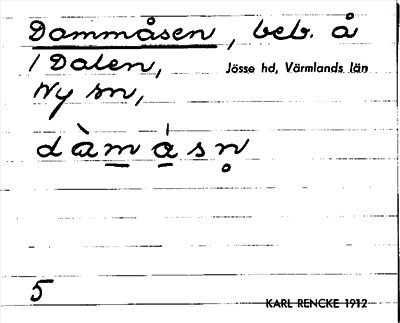 Dammåsen, beb. å
1 Dalen, Jösse hd, Värmlands län
Ny sn,
dàmåsn̥
5
KARL RENCKE 1912